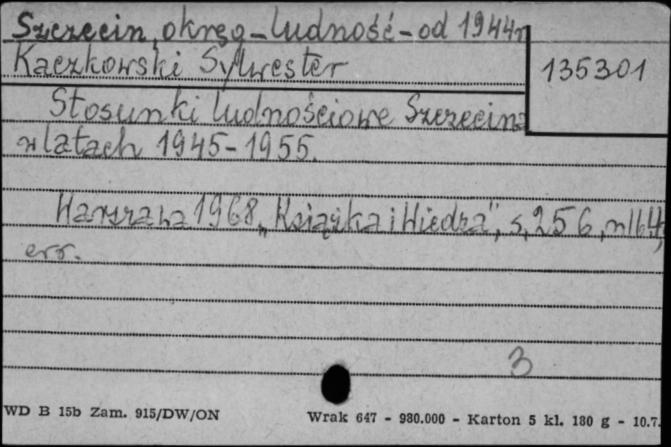 Szczecin, okręg - ludność - od 1944r
Kaczkowski Sylwester
135301
Stosunki ludnościowe Szczecina
w latach 1945-1955.
Warszawa 1968, "Książka i Wiedza", s. 256,
err.
3
WD B 15b Zam. 915/DW/ON
Wrak 647 - 980.000 - Karton 5 kl. 180 g - 10.7.